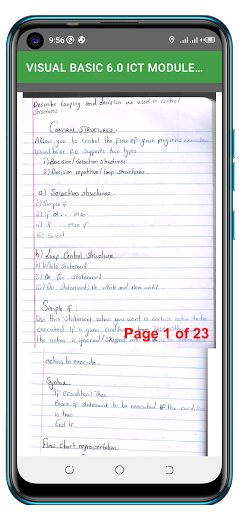 9:56
VISUAL BASIC 6.0 ICT MODULE...
Describe looping and decision as used in control
structures
CONTROL STRUCTURES.
Allow you to control the flow of your programs execution
Visual basic 6.0 supports two types
1) Decision/selection structures
2) Decision repetitive/loop structures
a) Selection structures
i) Simple if
ii) if else
iii) if else if
iv) Select
b) Loop Control Structure
i) While statement
ii) For statement
iii) Do statements, Do while and Do until
Simple if
Use this statement when you want a certain action to be
executed if a given condition
the action is ignored/skipped
Page 1 of 23
action to execute.
Syntax
If (Condition) Then
Block of statement to be executed if the condition
is true
End if
Flow chart representation